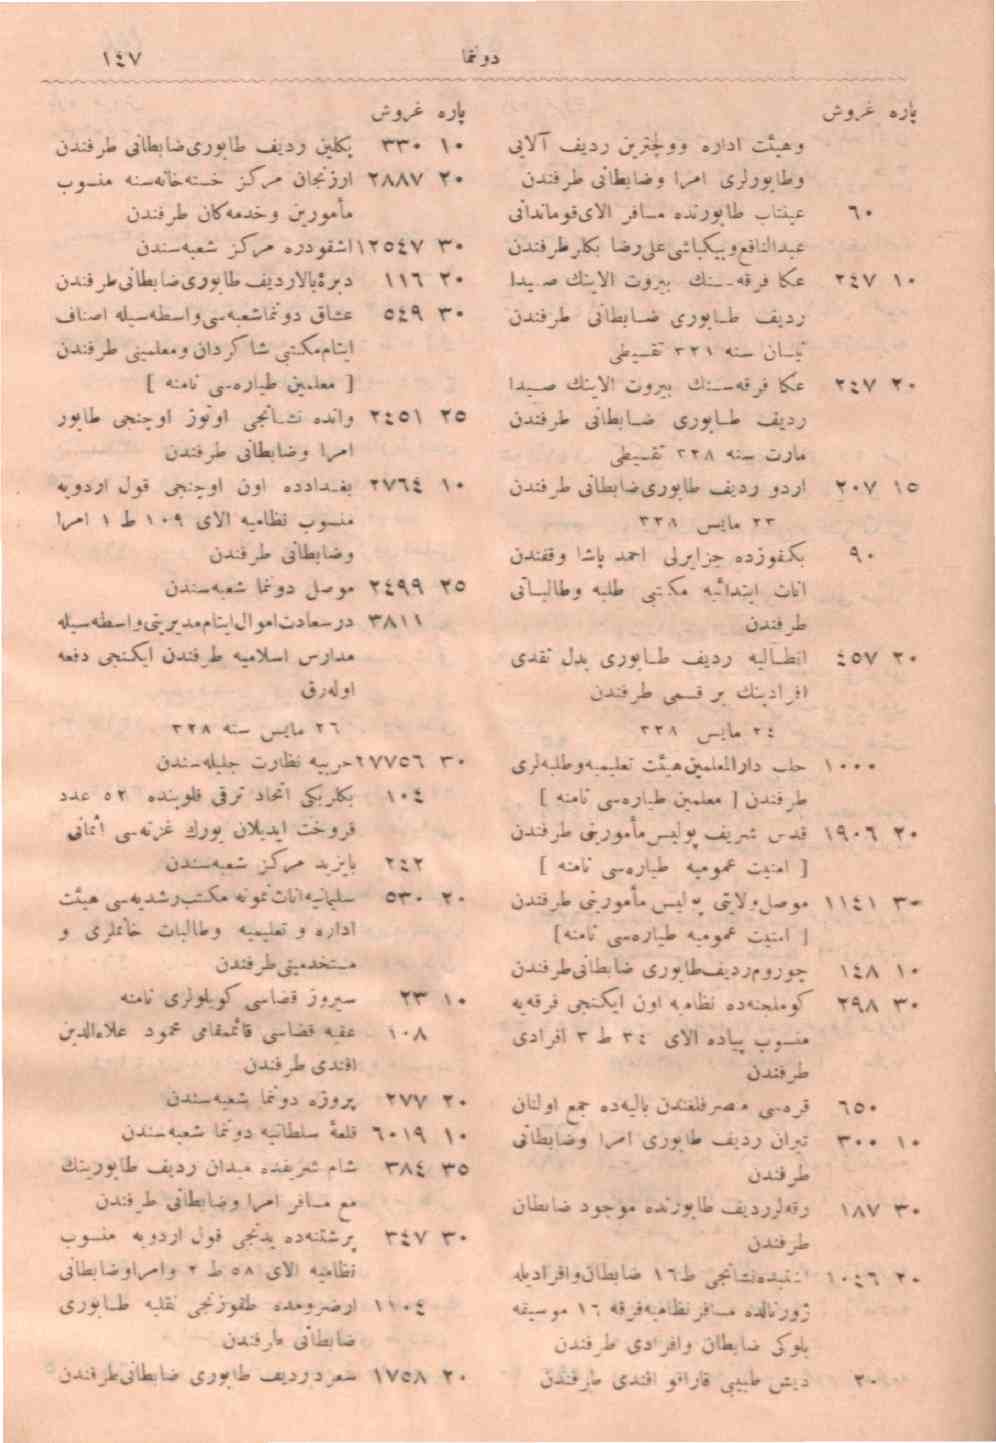 دوننما ١٤٧
پاره غروش
وهيئت اداره ووچترين رديف آلايى
وطابورلرى امرا وضابطانى طرفندن
٦٠ عينتاب طابورنده مسافر الاى قوماندانى
عبدالنافع وبيكباشى على رضا بكلر طرفندن
١٠ ٢٤٧ عكا فرقه سنك بيروت الاينك صيدا
رديف طابورى ضابطانى طرفندن
نيسان سنه ٣٢١ تقسيطى
٢٠ ٢٤٧ عكا فرقه سنك بيروت الاينك صيدا
رديف طابورى ضابطانى طرفندن
مارت سنه ٣٢٨ تقسيطى
١٥ ٢٠٧ اردو رديف طابورى ضابطانى طرفندن
٢٣ مايس ٣٢٨
٩٠ بكفوزده جزايرلى احمد پاشا وقفندن
اناث ابتدائيه مكتبى طلبه وطالباتى
طرفندن
٢٠ ٤٥٧ انطاليه رديف طابورى بدل نقدى
افرادينك بر قسمى طرفندن
٢٤ مايس ٣٢٨
١٠٠٠ حلب دارالمعلمين هيئت تعليميه وطلبه لرى
طرفندن [ معلمين طياره سى نامنه ]
٢٠ ١٩٠٦ قدس شريف پوليس مأمورينى طرفندن
[ امنيت عموميه طياره سى نامنه ]
٣٠ ١١٤١ موصل ولايتى پوليس مأمورينى طرفندن
[ امنيت عموميه طياره سى نامنه ]
١٠ ١٤٨ چوروم رديف طابورى ضابطانى طرفندن
٣٠ ٢٩٨ كوملجنه ده نظاميه اون ايكنجى فرقه يه
منسوب پياده الاى ٣٤ ط ٣ افرادى
طرفندن
٦٥٠ قره سى متصرفلغندن باليه ده جمع اولنان
١٠ ٣٠٠ تيران رديف طابورى امرا وضابطانى
طرفندن
٣٠ ١٨٧ رقه لر رديف طابورنده موجود ضابطان
طرفندن
٢٠ ١٠٤٦ نشانجى ط ١٦ ضابطان وافراديله
ژورنالده مسافر نظاميه فرقه ١٦ موسيقه
بلوكى ضابطان وافرادى طرفندن
٢٠ ديش طبيبى قارافو افندى طرفندن
پاره غروش
١٠ ٣٣٠ يكلين رديف طابورى ضابطانى طرفندن
٢٠ ٢٨٨٧ ارزنجان مركز خسته خانه سنه منسوب
مأمورين وخدمه كان طرفندن
٣٠ ١٢٥٤٧ اشقودره مركز شعبه سندن
٢٠ ١١٦ دبرۀ بالا رديف طابورى ضابطانى طرفندن
٣٠ ٥٤٩ عشاق دوننما شعبه سى واسطه سيله اصناف
ايتام مكتبى شاكردان ومعلمينى طرفندن
[ معلمين طياره سى نامنه ]
٢٥ ٢٤٥١ وانده نشانجى اوتوز اوچنجى طابور
امرا وضابطانى طرفندن
١٠ ٢٧٦٤ بغدادده اون اوچنجى قول اردويه
منسوب نظاميه الاى ١٠٩ ط ١ امرا
وضابطانى طرفندن
٢٥ ٢٤٩٩ موصل دوننما شعبه سندن
٣٨١١ درسعادت اموال ايتام مديريتى واسطه سيله
مدارس اسلاميه طرفندن ايكنجى دفعه
اوله رق
٢٦ مايس سنه ٣٢٨
٣٠ ٢٧٧٥٦ حربيه نظارت جليله سندن
١٠٤ بكلربكى اتحاد ترقى قلوبنده ٥٢ عدد
فروخت ايديلان يورك غزته سى اثمانى
٢٤٢ بايزيد مركز شعبه سندن
٢٠ ٥٣٠ سليمانيه اناث نمونه مكتب رشديه سى هيئت
اداره و تعليميه وطالبات خانملرى و
مستخدمينى طرفندن
١٠ ٢٣ سيروز قضاسى كويلولرى نامنه
١٠٨ عقبه قضاسى قائممقامى محمود علاءالدين
افندى طرفندن
٢٠ ٢٧٧ پروزه دوننما شعبه سندن
١٠ ٦٠١٩ قلعۀ سلطانيه دوننما شعبه سندن
٣٥ ٣٨٤ شام شريفده ميدان رديف طابورينك
مع مسافر امرا وضابطانى طرفندن
٣٠ ٣٤٧ پرشتنه ده يدنجى قول اردويه منسوب
نظاميه الاى ٥٨ ط ٢ وامرا وضابطانى
١١٠٤ ارضرومده طقوزنجى نقليه طابورى
ضابطانى طرفندن
٢٠ ١٧٥٨ سعرد رديف طابورى ضابطانى طرفندن